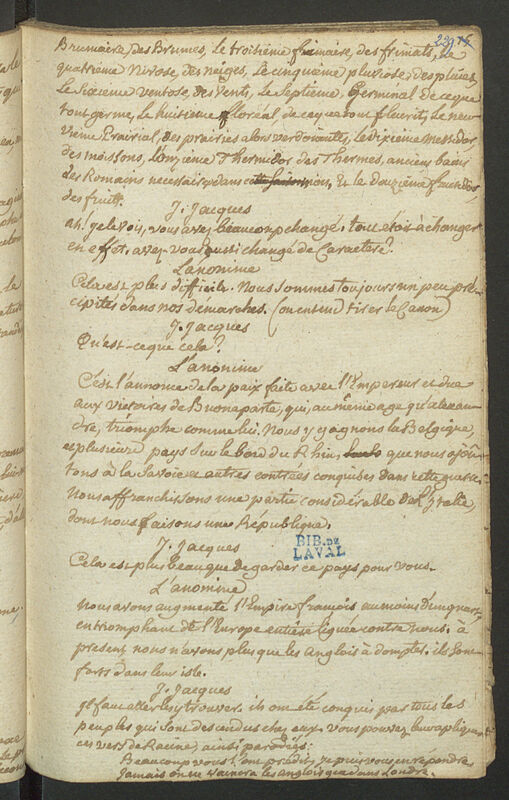 229
Brumaire, des Brumes, le troisième frimaire, des frimats, le
quatrième Nivose, des neiges, Le cinquième pluviose, des pluies,
Le Sixieme Ventose, des Vents, Le Septieme, Germinal de ceque
tout germe, le huitieme floréal, de ceque tout fleurit, Le neu-
vième Prairial, des prairies alors verdoiantes, Le dixieme messidor
des moissons, l'onzieme Thermidor des Thermes, anciens bains
des Romains necessaires dans Et le douzieme fructidor
des fruits.
J. Jacques
ah! je le vois, vous avez beaucoup changé. tout etoit à changer
en effet. avez-vous aussi changé de Caractere?
L'anonime
Cela est plus difficile. Nous sommes toujours un peu pré-
cipités dans nos démarches. (on entend tirer le Canon)
J. Jacques
Qu'est-ce que cela?
L'anonime
C'est l'annonce de la paix faite avec l'Empereur et due
aux victoires de Buonaparte, qui, au même age qu'alexan-
dre, triomphe comme lui. Nous y gagnons la Belgique,
et plusieurs pays sur le bord du Rhin, que nous ajoû-
tons à la Savoie et autres contrées conquises dans cette guerre.
Nous affranchissons une partie considérable de l'Italie
dont nous faisons une République.
BIB. DE
LAVAL
J. Jacques
Cela est plus beau que de garder ce pays pour vous.
L'anonime
Nous avons augmenté l'Empire françois au moins d'un quart,
en triomphant de l'Europe entière liguée contre nous. à
présent nous n'avons plus que les Anglois à dompter. ils sont
forts dans leur isle.
J. Jacques
Il faut aller les y trouver. ils ont été conquis par tous les
peuples qui sont descendus chez eux. vous pouvez leur appliquer
ces vers de Racine, ainsi parodiés:
Beaucoup vous l'ont prédit, je puis vous en répondre
Jamais on ne vaincra les anglois que dans Londre.